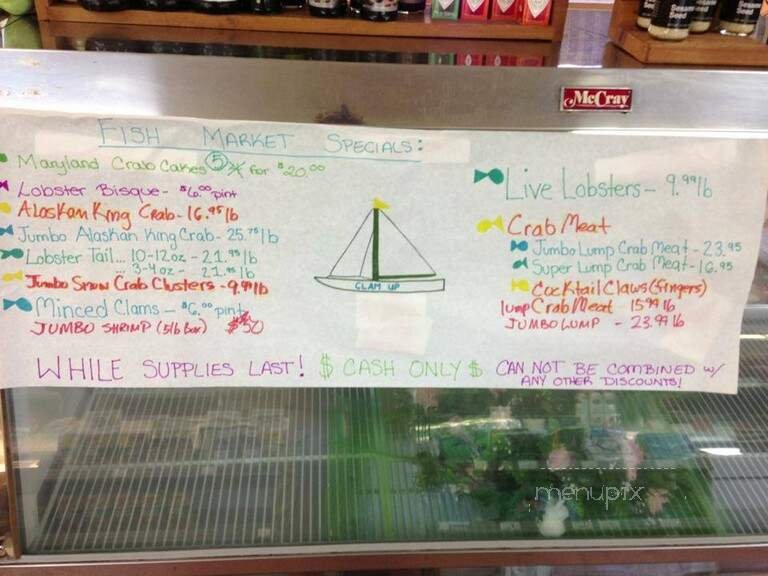 Sesame Seed
Sesame Seed
McCray
FISH MARKET SPECIALS:
Maryland Crab Cakes 5 for $20.00
Lobster Bisque - $6.00 pint
Alaskan King Crab - 16.95 lb
Jumbo Alaskan King Crab - 25.75 lb
Lobster Tail... 10-12oz - 21.95 lb
... 3-4oz - 21.95 lb
Jumbo Snow Crab Clusters - 9.99 lb
Minced Clams - $6.00 pint
JUMBO SHRIMP (5lb Box) $50
CLAM UP
Live Lobsters - 9.99 lb
Crab Meat
Jumbo Lump Crab Meat - 23.95
Super Lump Crab Meat - 16.95
Cocktail Claws (fingers)
lump Crab Meat 15.99 lb
JUMBO LUMP - 23.99 lb
WHILE SUPPLIES LAST! $ CASH ONLY $ CAN NOT BE COMBINED w/
ANY OTHER DISCOUNTS!
menupix